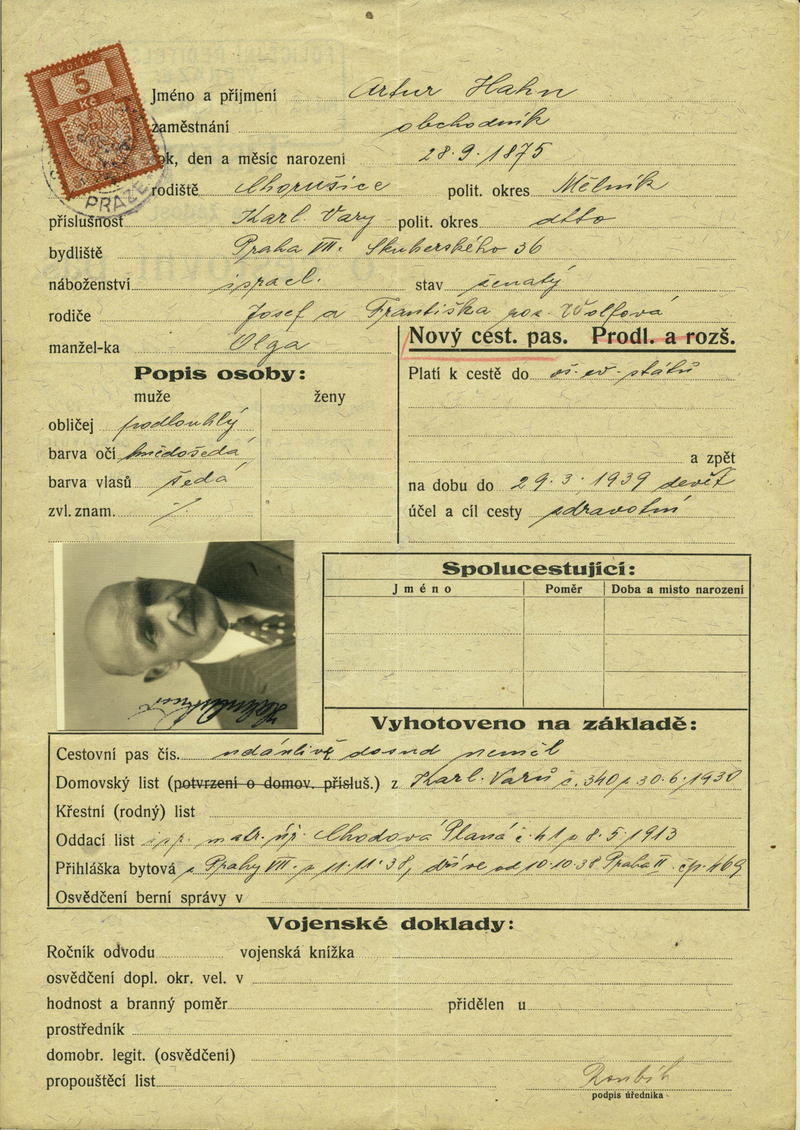 KOLEK
5
Kč
PRAZE
Jméno a příjmení Artur Hahn
zaměstnání obchodník
rok, den a měsíc narození 28.9.1875
rodiště Chorušice polit. okres Mělník
příslušnost Karl. Vary polit. okres dtto
bydliště Praha VII. Skuherského 36
náboženství israel. stav ženatý
rodiče Josef a Františka roz. Wolfová
manžel-ka Olga
Nový cest. pas. Prodl. a rozš.
Popis osoby:
muže ženy
obličej podlouhlý
barva očí hnědošedá
barva vlasů šedá
zvl. znam. /.
Platí k cestě do ev. států
a zpět
na dobu do 29.3.1939 devět
účel a cíl cesty zdravotní
Spolucestující:
Jméno Poměr Doba a místo narození
Vyhotoveno na základě:
Cestovní pas čís. udánlivě dosud neměl
Domovský list (potvrzení o domov. přísluš.) z Karl. Varů č. 340 z 30.6.1930
Křestní (rodný) list
Oddací list matr. úř. Chodová Planá č. 41 z 8.5.1913
Přihláška bytová z Prahy VII. z 11.11.38, dříve od 10.10.38 Praha II. čp. 469
Osvědčení berní správy v
Vojenské doklady:
Ročník odvodu vojenská knížka
osvědčení dopl. okr. vel. v
hodnost a branný poměr přidělen u
prostředník
domobr. legit. (osvědčení)
propouštěcí list
podpis úředníka